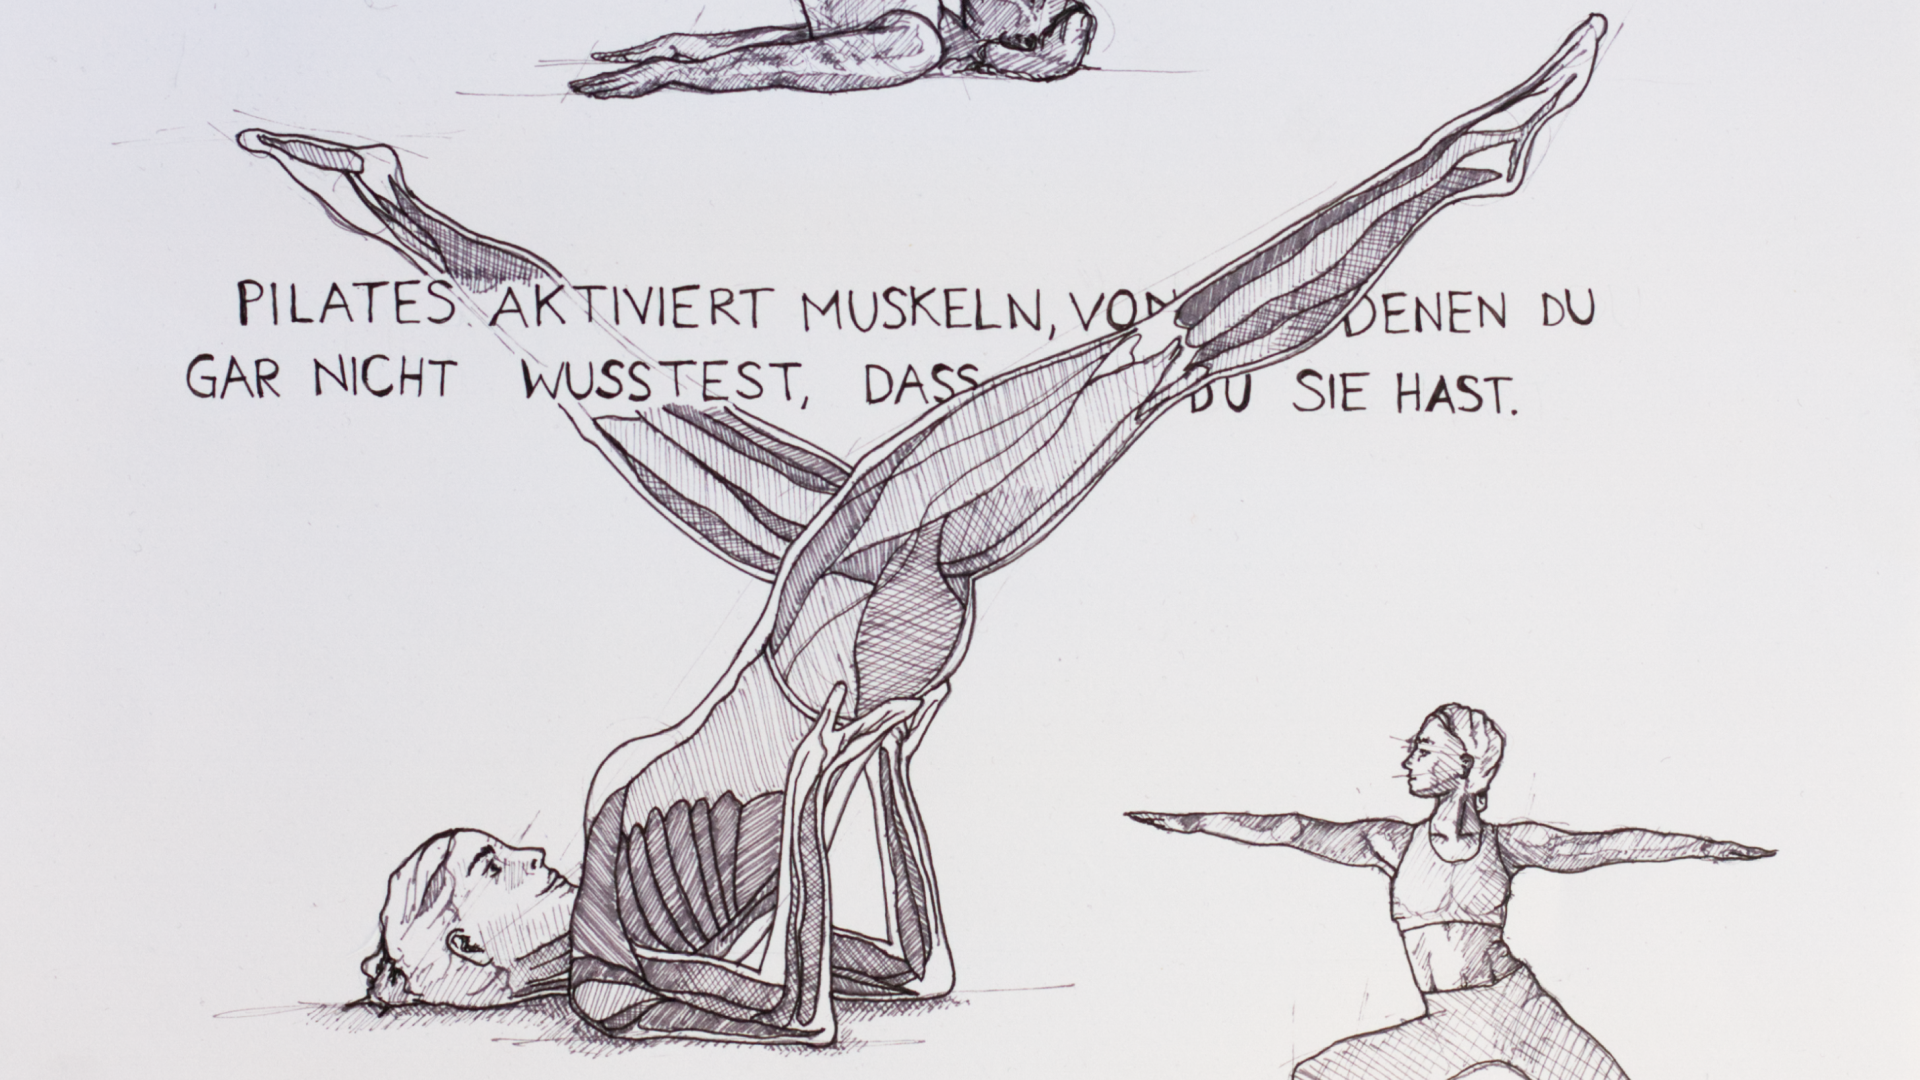 PILATES AKTIVIERT MUSKELN, VON DENEN DU
GAR NICHT WUSSTEST, DASS DU SIE HAST.